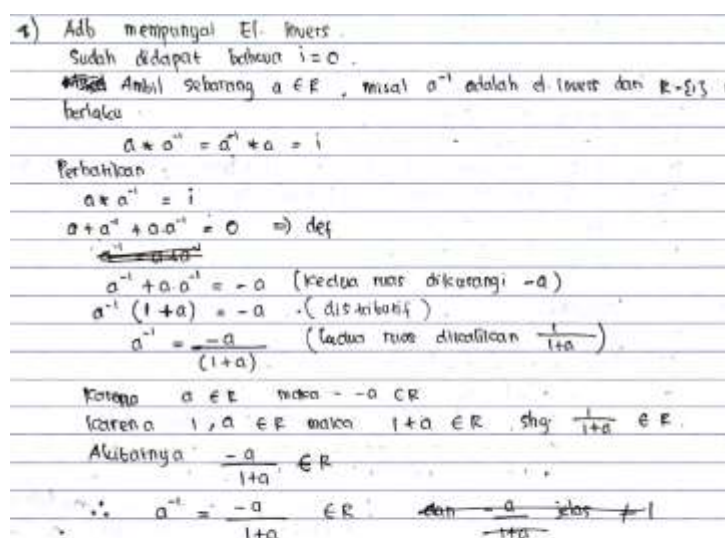 1) Adb mempunyai El. Invers.
Sudah didapat bahwa i = 0.
Ambil sebarang a ∈ R, misal a⁻¹ adalah el. invers dari R-{1}
berlaku
a * a⁻¹ = a⁻¹ * a = i
Perhatikan
a * a⁻¹ = i
a + a⁻¹ + a.a⁻¹ = 0 => def
a⁻¹ + a.a⁻¹ = -a (kedua ruas dikurangi -a)
a⁻¹ (1 + a) = -a (distributif)
a⁻¹ = -a/(1+a) (kedua ruas dikalikan 1/(1+a))
Karena a ∈ R maka -a ∈ R
karena 1, a ∈ R maka 1+a ∈ R shg 1/(1+a) ∈ R.
Akibatnya -a/(1+a) ∈ R
∴ a⁻¹ = -a/(1+a) ∈ R. dan -a/(1+a) jelas ≠ 1